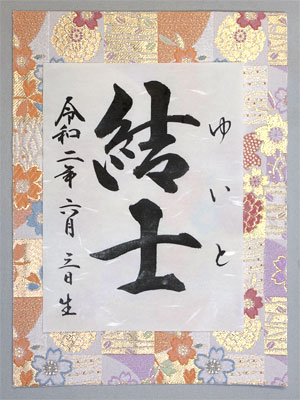 結士
ゆいと
令和二年六月三日生